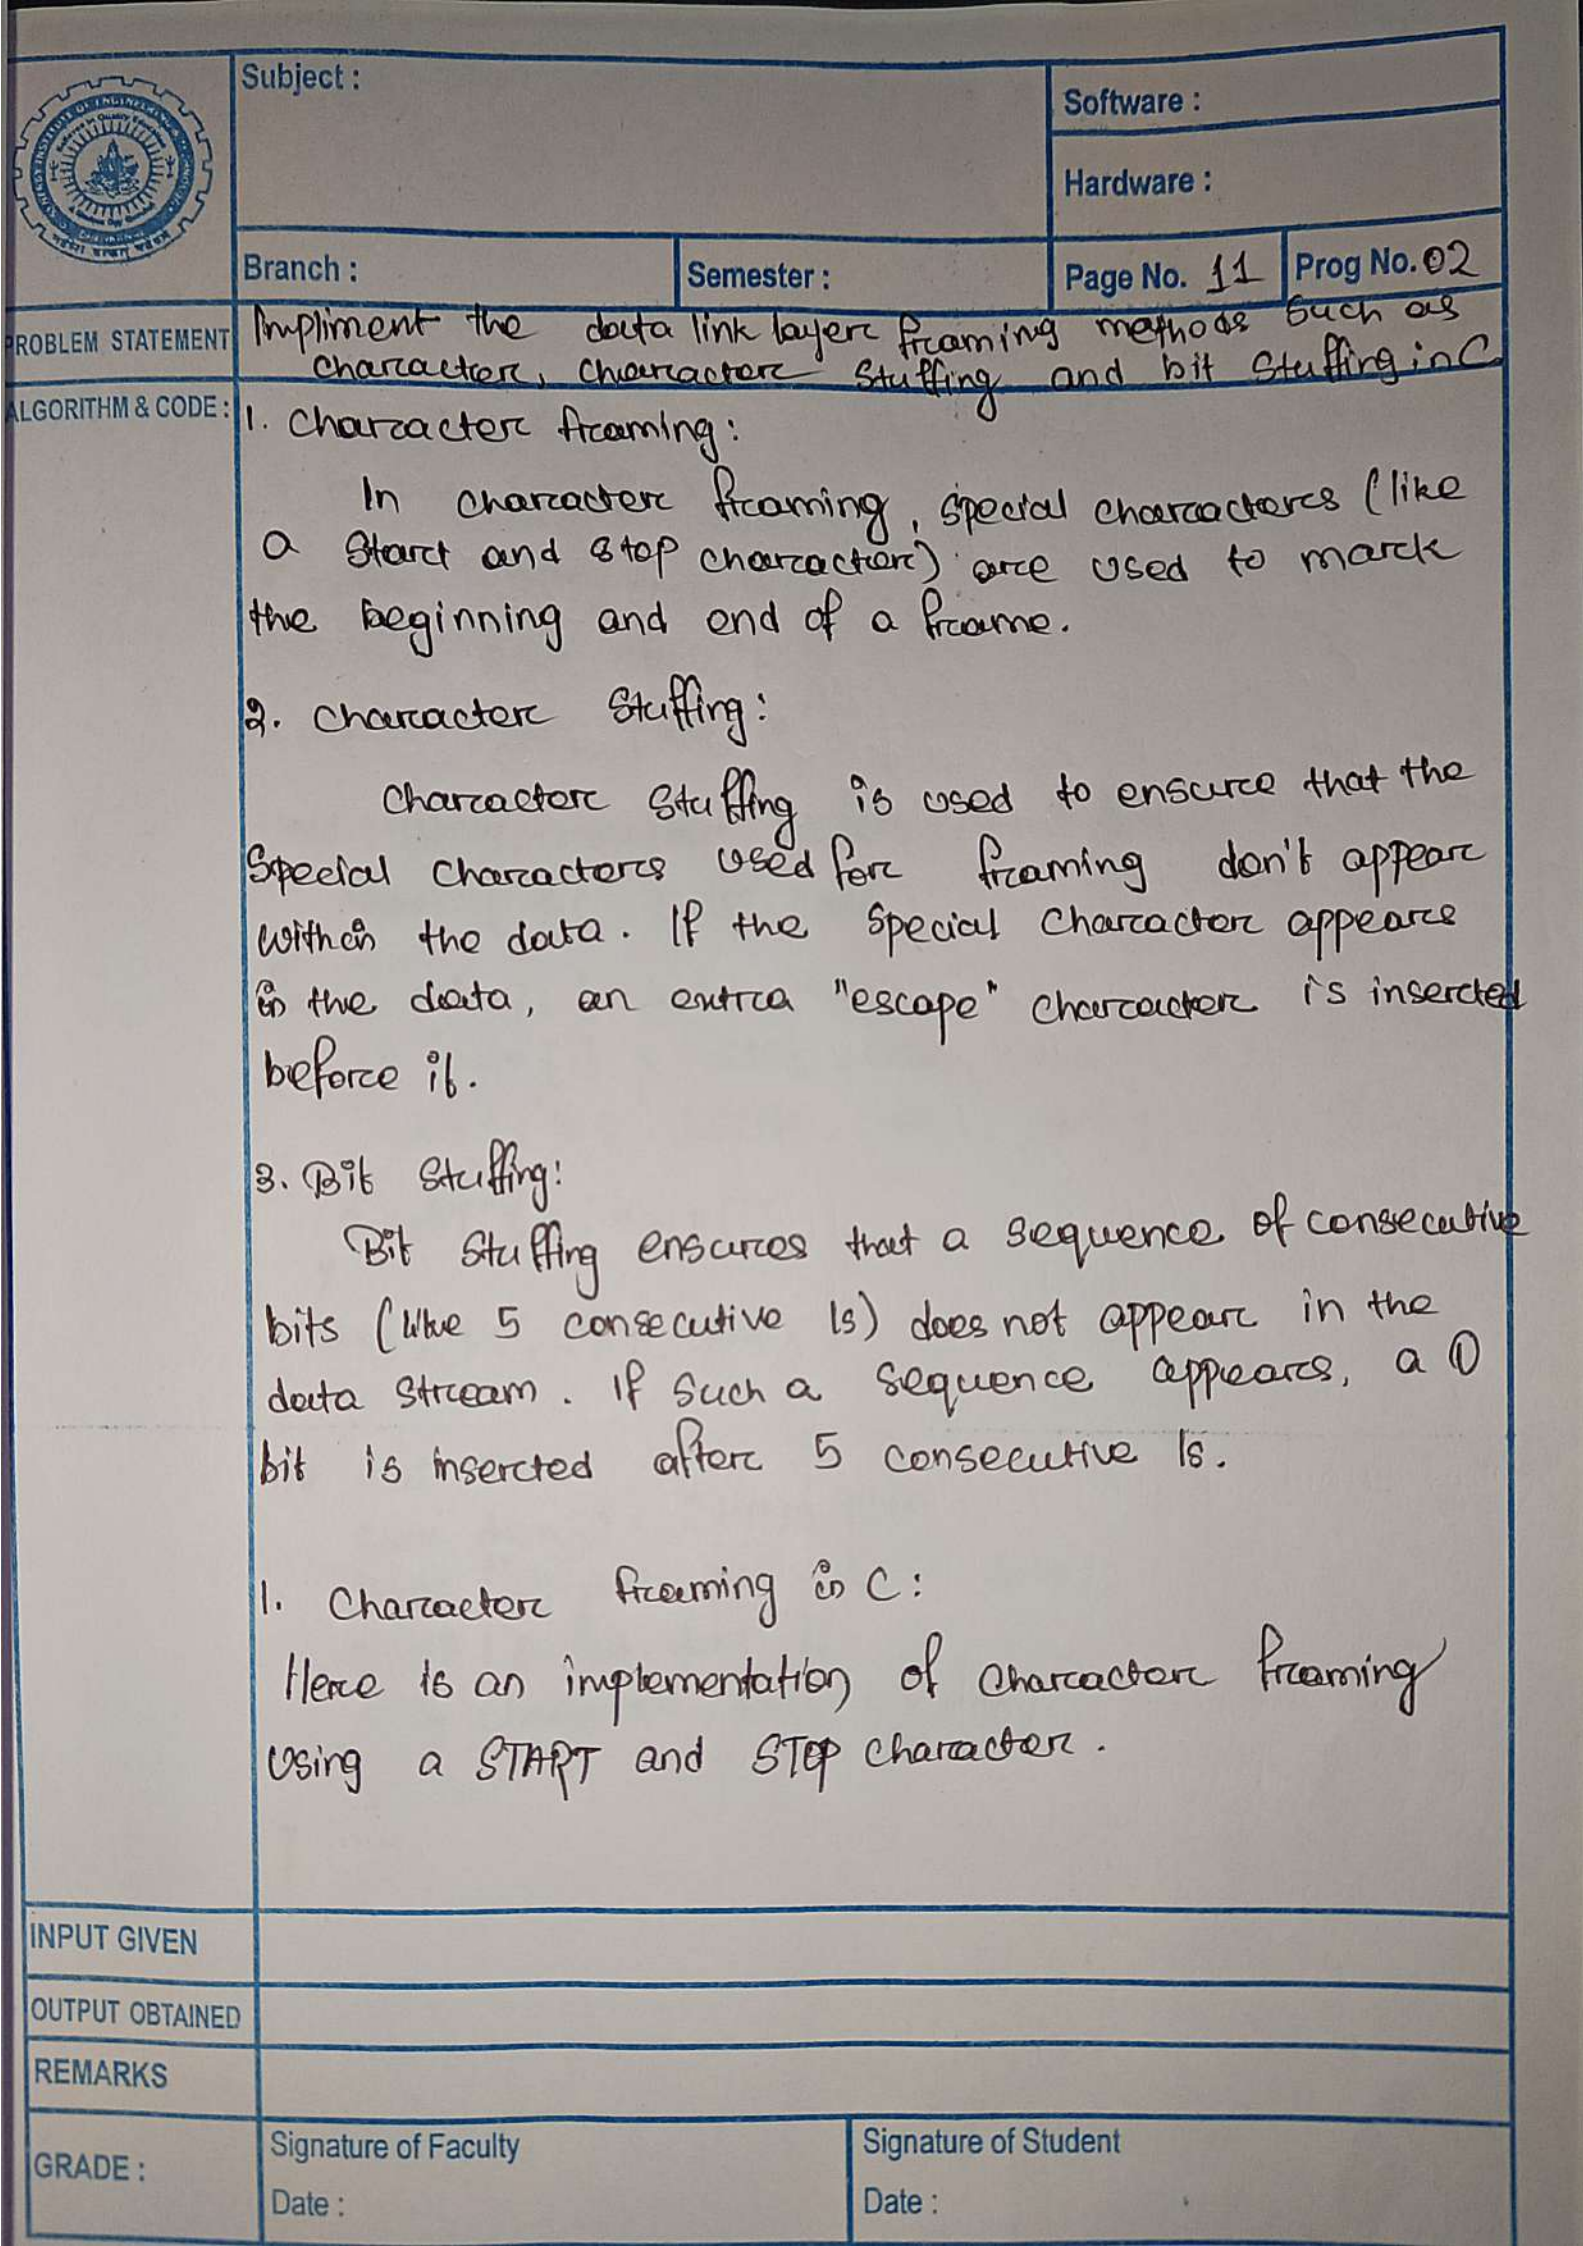 Subject :
Software :
Hardware :
Branch :
Semester :
Page No. 11
Prog No. 02
PROBLEM STATEMENT
Impliment the data link layer framing methods such as
character, character stuffing and bit stuffing in C
ALGORITHM & CODE :
1. Character framing:
In character framing, special characters (like
a start and stop character) are used to mark
the beginning and end of a frame.
2. Character Stuffing:
Character stuffing is used to ensure that the
special characters used for framing don't appear
within the data. If the special character appears
in the data, an extra "escape" character is inserted
before it.
3. Bit Stuffing:
Bit stuffing ensures that a sequence of consecutive
bits (like 5 consecutive 1s) does not appear in the
data stream. If such a sequence appears, a 0
bit is inserted after 5 consecutive 1s.
1. Character framing in C:
Here is an implementation of character framing
using a START and STOP character.
INPUT GIVEN
OUTPUT OBTAINED
REMARKS
GRADE :
Signature of Faculty
Date :
Signature of Student
Date :